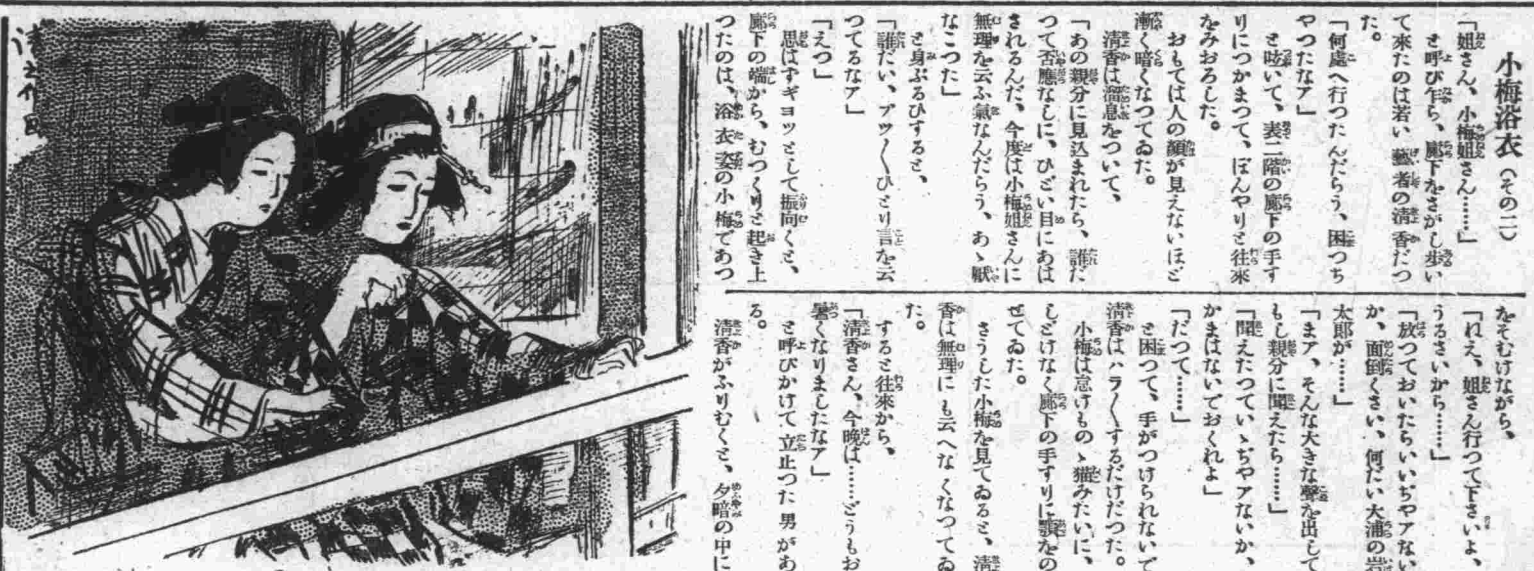 小梅浴衣(その二)
「姐さん、小梅姐さん………」
と呼び乍ら、廊下をさがし歩い
て來たのは若い藝者の淸香だつ
た。
「何處へ行つたんだらう、困つち
やつたなア」
と呟いて、裏二階の廊下の手す
りにつかまつて、ぼんやりと往來
をみおろした。
おもては人の顏が見えないほど
漸く暗くなつてゐた。
淸香は溜息をついて、
「あの親分に見込まれたら、誰だ
つて否應なしに、ひどい目にあは
されるんだ、今度は小梅姐さんに
無理を云ふ氣なんだらう、あゝ厭
なこつた」
と身ぶるひすると、
「誰だい、ブツ〳〵ひとり言を云
つてるなア」
「えつ」
思はずギヨツとして振向くと、
廊下の端から、むつくりと起き上
つたのは、浴衣姿の小梅であつ
をそむけながら、
「れえ、姐さん行つて下さいよ、
うるさいから………」
「放つておいたらいいぢやアない
か、面倒くさい、何だい大浦の岩
太郎が………」
「まア、そんな大きな聲を出して
もし親分に聞えたら………」
「聞えたつていゝぢやアないか、
かまはないでおくれよ」
「だつて………」
と困つて、手がつけられないで
淸香はハラ〳〵するだけだつた。
小梅は怠けものゝ猫みたいに、
しどけなく廊下の手すりに顎をの
せてゐた。
さうした小梅を見てゐると、淸
香は無理にも云へなくなつてゐ
た。
すると往來から、
「淸香さん、今晩は………どうもお
暑くなりましたなア」
と呼びかけて立止つた男があ
る。
淸香がふりむくと、夕暗の中に